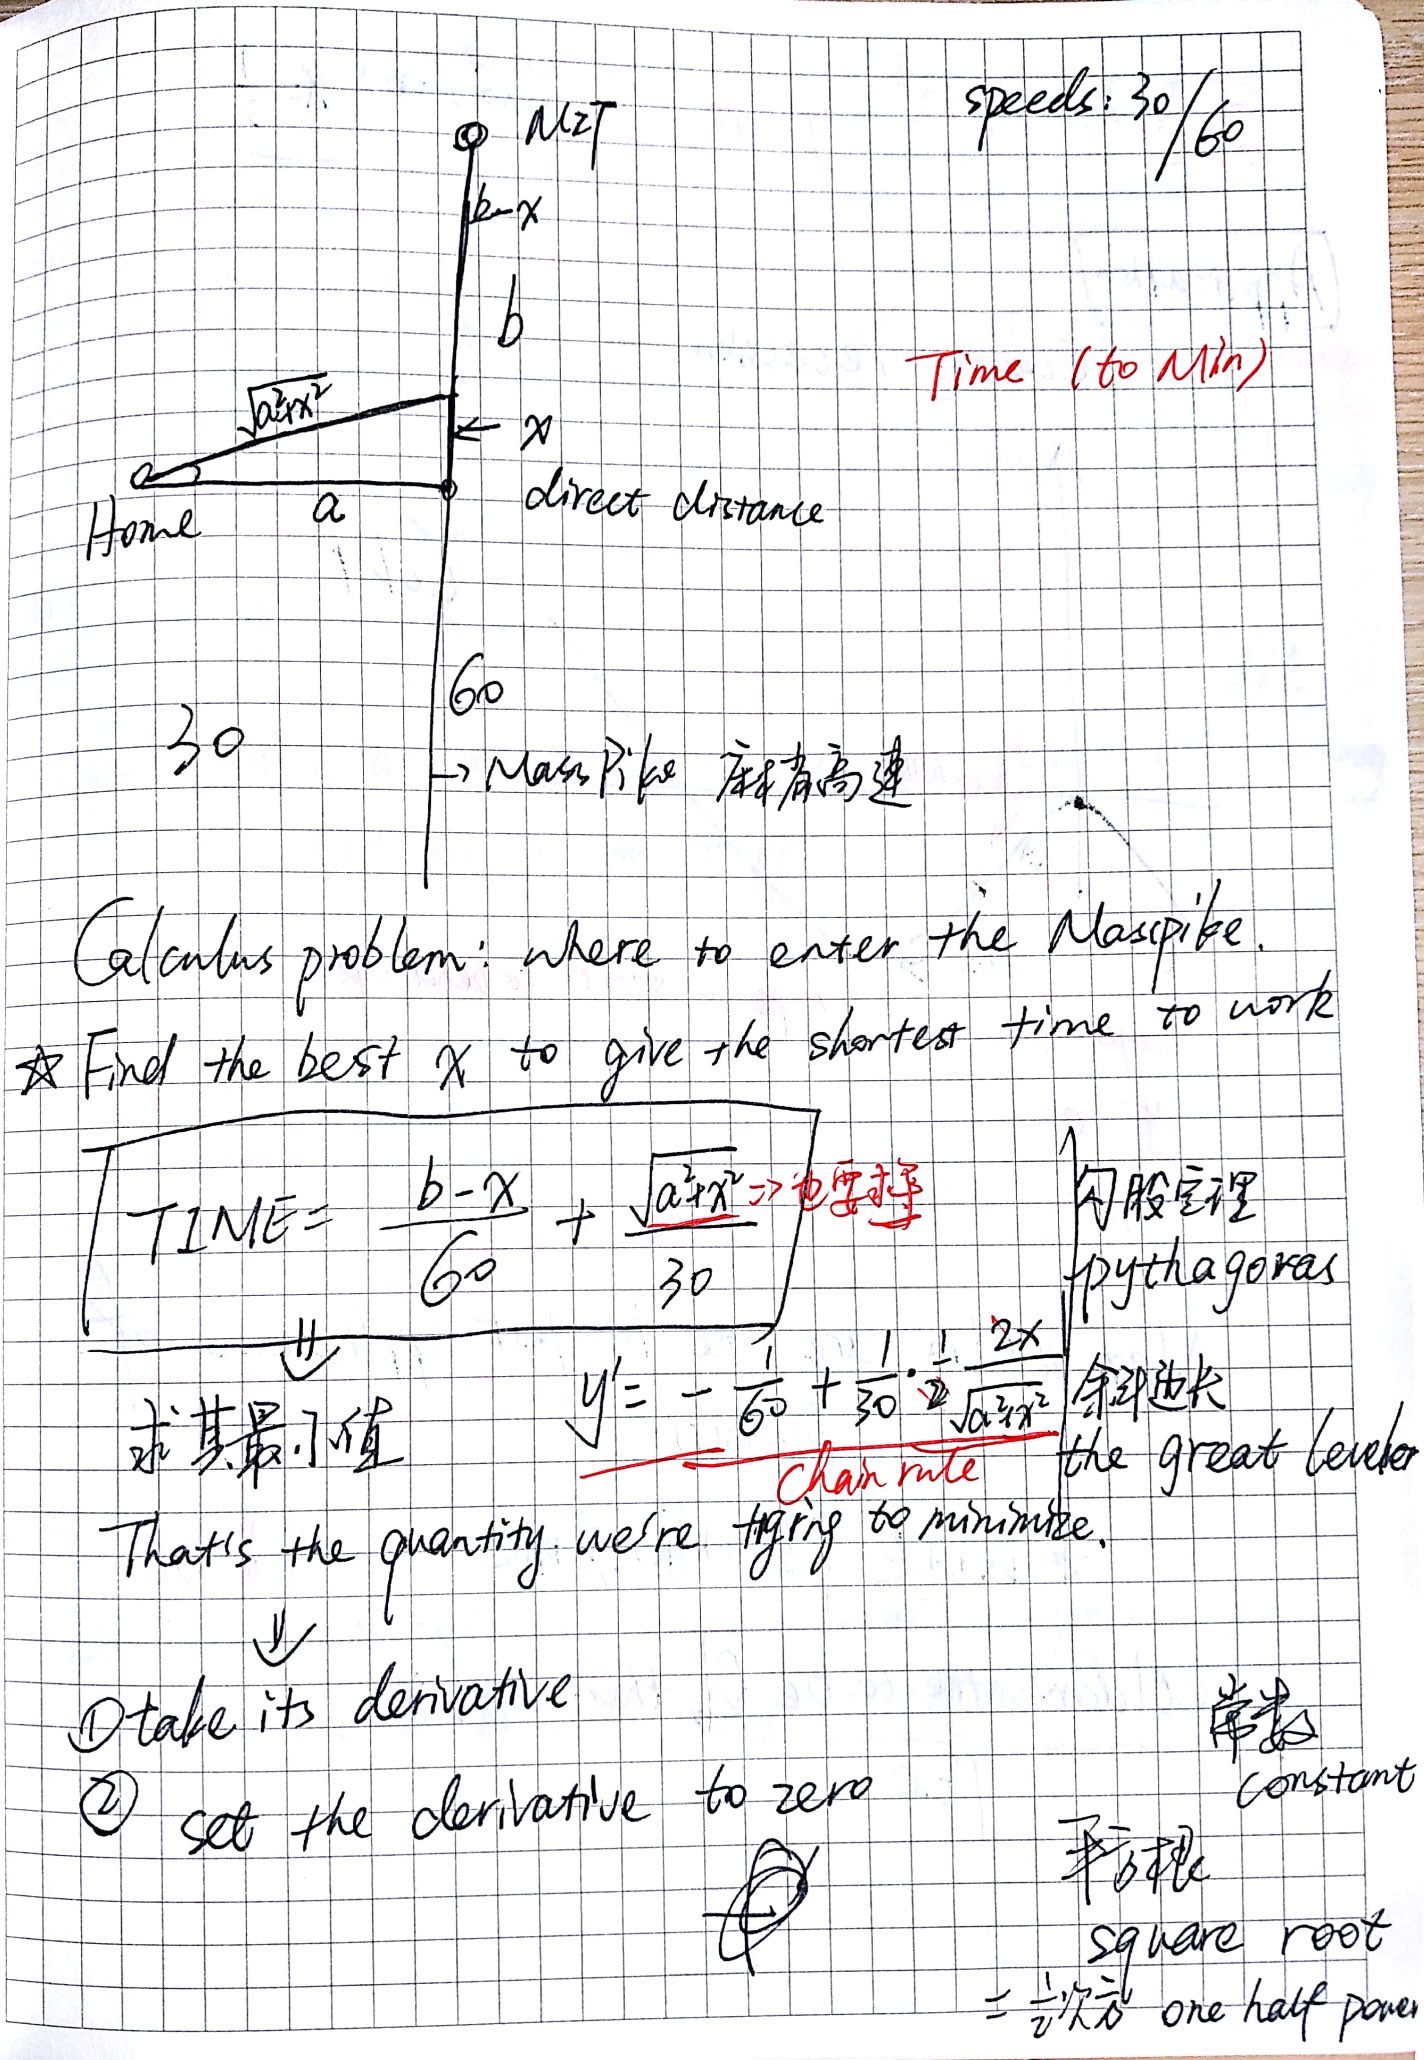 speeds: 30/60
MIT
b-x
b
Time (to Min)
√a²+x²
x
a
direct distance
Home
60
30
→ Mass Pike 麻省高速
Calculus problem: where to enter the Masspike.
☆ Find the best x to give the shortest time to work
TIME = b-x/60 + √a²+x²/30 => 也要求导
勾股定理
pythagoras
y' = - 1/60 + 1/30 · 1/2 2x/√a²+x²
chain rule
求其最小值
斜边长
the great leveler
That's the quantity we're trying to minimize.
① take its derivative
② set the derivative to zero
常数
constant
平方根
square root
= 1/2次方 one half power